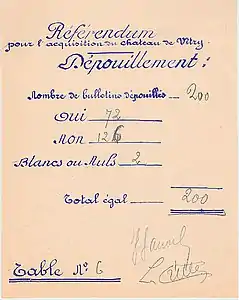 Référendum
pour l'acquisition du chateau de Vitry.
Dépouillement:
Nombre de bulletins dépouillés 200
Oui 72
Non 126
Blancs ou Nuls 2
Total égal 200
Table N° 6